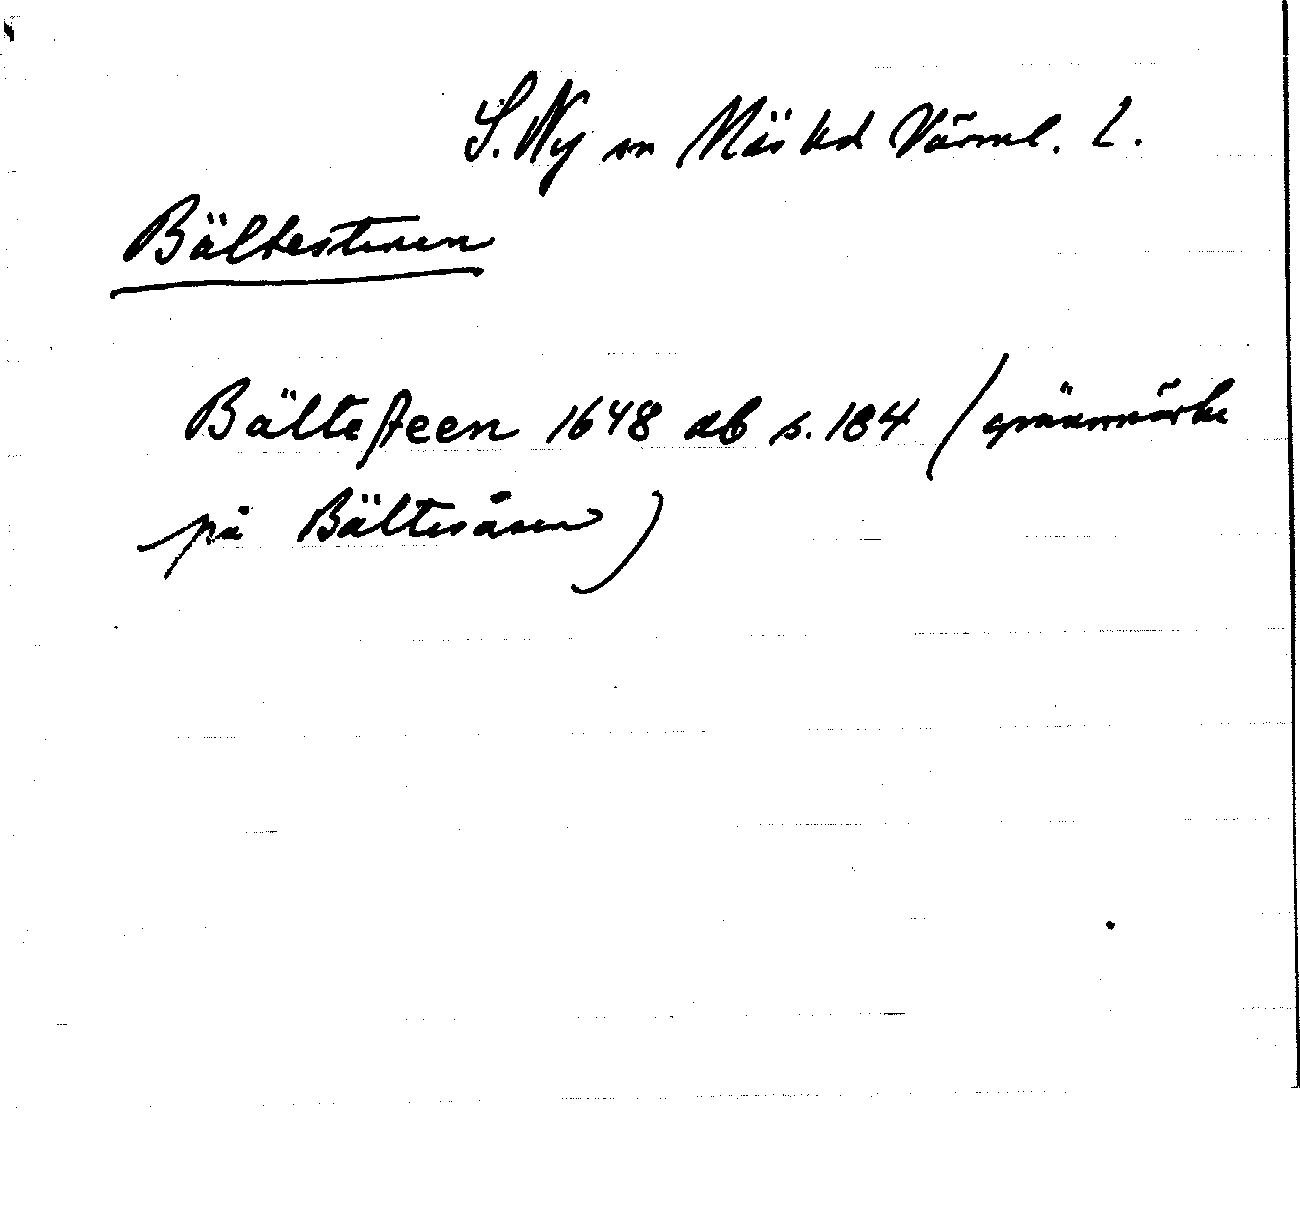 S. Ny sn Näs hd Värml. l.
Bältestenen
Bältesteen 1648 ab s. 184 (gränsmärke
på Bältesåsen)